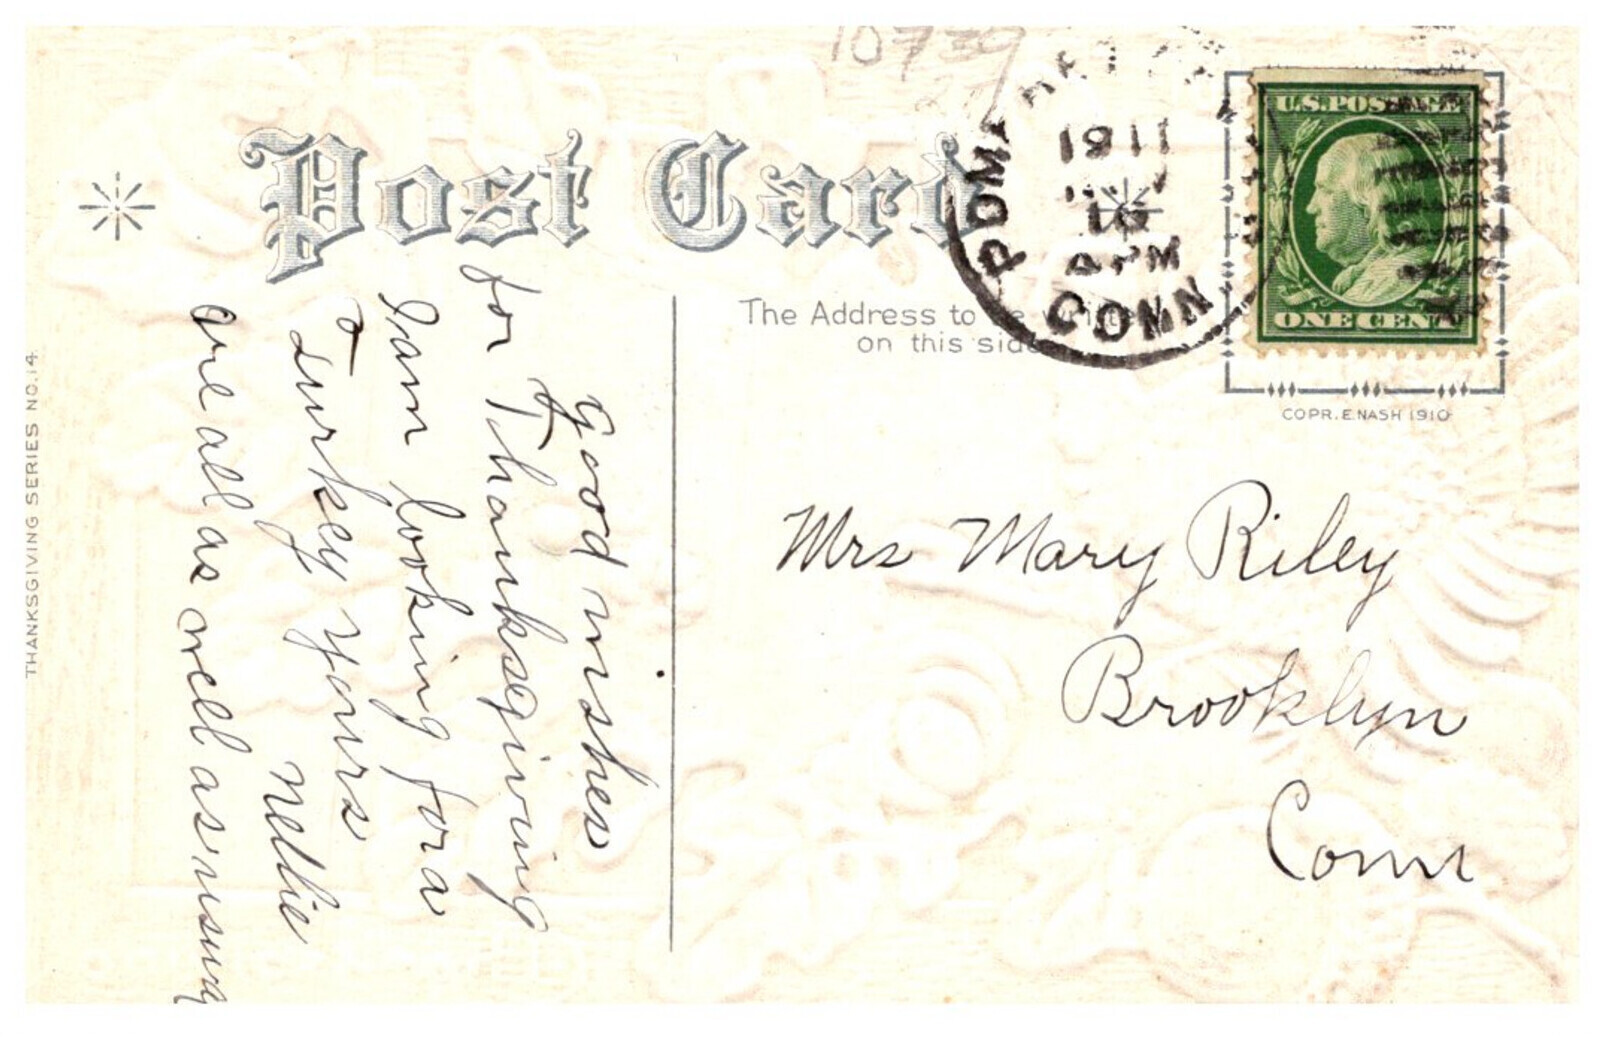 10739
Post Card
POM
1911
CONN
U.S.POSTAGE
ONE CENT
The Address to be written
on this side
COPR. E. NASH 1910
THANKSGIVING SERIES NO. 14.
Good wishes
for Thanksgiving
I am looking for a
Turkey Yours
Nellie
are all as well as usual
Mrs Mary Riley
Brooklyn
Conn